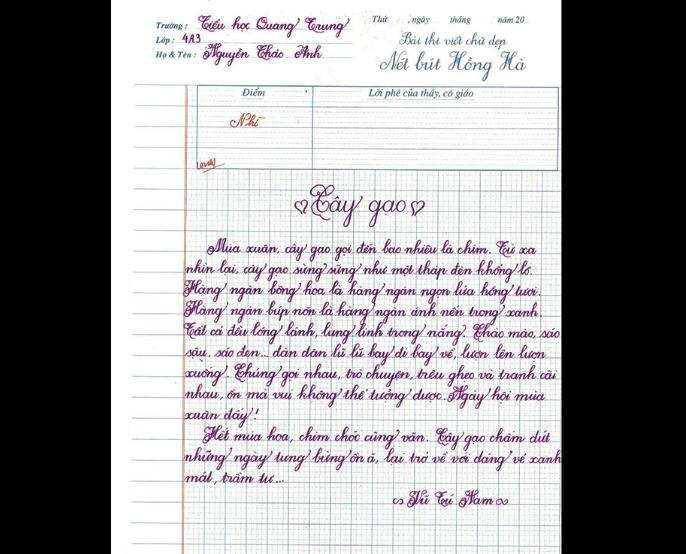 Trường: Tiểu học Quang Trung
Thứ , ngày tháng năm 20
Lớp: 4A3
Bài thi viết chữ đẹp
Họ & Tên: Nguyễn Thảo Anh
Nét bút Hồng Hà
Điểm
Lời phê của thầy, cô giáo
Nhì
Cây gạo
Mùa xuân, cây gạo gọi đến bao nhiêu là chim. Từ xa
nhìn lại, cây gạo sừng sững như một tháp đèn khổng lồ.
Hàng ngàn bông hoa là hàng ngàn ngọn lửa hồng tươi.
Hàng ngàn búp nõn là hàng ngàn ánh nến trong xanh.
Tất cả đều lóng lánh, lung linh trong nắng. Chào mào, sáo
sậu, sáo đen... đàn đàn lũ lũ bay đi bay về, lượn lên lượn
xuống. Chúng gọi nhau, trò chuyện, trêu ghẹo và tranh cãi
nhau, ồn mà vui không thể tưởng được. Ngày hội mùa
xuân đấy!
Hết mùa hoa, chim chóc cũng vãn. Cây gạo chấm dứt
những ngày tưng bừng ồn ã, lại trở về với dáng vẻ xanh
mát, trầm tư...
Vũ Tú Nam